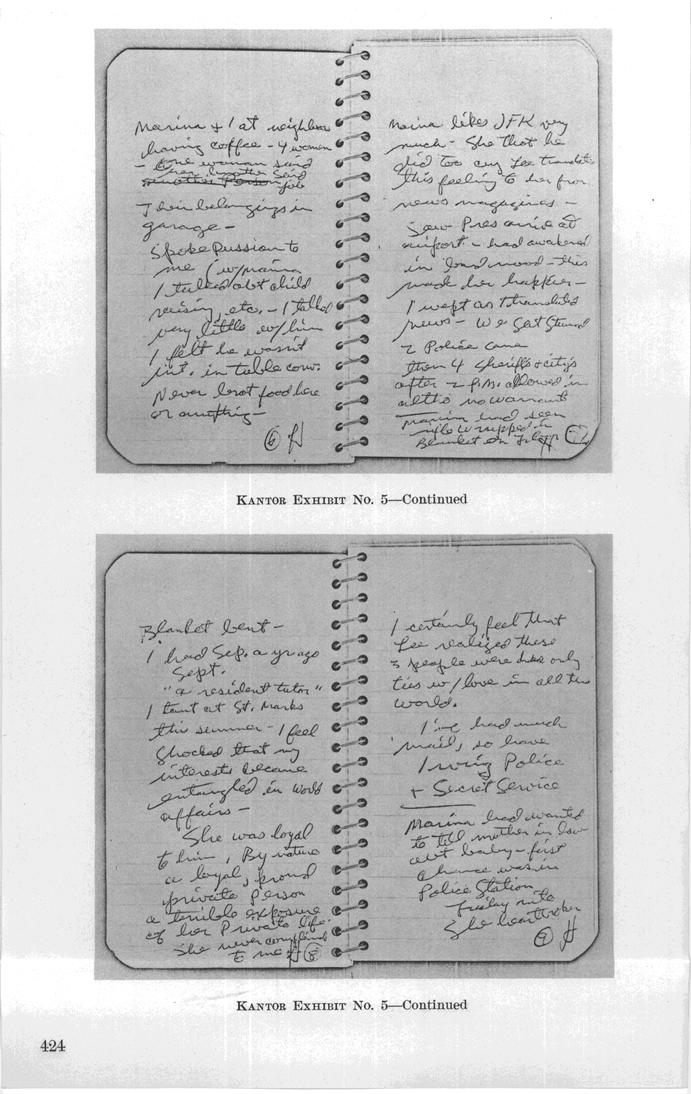 Marina & I at neighbors
having coffee - 4 women
- one woman said
her brother said
another person job
Their belongings in
garage -
Spoke Russian to
me (w/marina
I talked abt child
raising, etc. - I talked
very little w/him
I felt he wasn't
int. in table conv.
Never brot food here
or anything -
6 H
Marina likes JFK very
much - She that he
did too cuz Lee translate
this feeling to her from
news magazines -
Saw Pres arrive at
airport - had awakened
in bad mood - this
made her happier -
I wept as I translated
news - We sat
2 Police came
then 4 sheriffs & city's
after 2 P.M. allowed in
altho no warrants
Marina had seen
rifle wrapped in
Blanket on
H 7
KANTOR EXHIBIT No. 5—Continued
Blanket bent -
I had Sep. a yr ago
Sept.
"a resident tutor"
I taut at St. Marks
this summer - I feel
shocked that my
interests became
entangled in world
affairs -
She was loyal
to him, By nature
a loyal, proud
private person
a terrible exposure
of her Private life.
She never complained
to me H 8
I certainly feel that
Lee realized these
3 people were his only
ties w/love in all the
world.
I've had much
mail, so have
Irving Police
+ Secret Service
Marina had wanted
to tell mother in law
abt baby - first
chance was in
Police Station
Friday nite
She heartbroken
9 H
KANTOR EXHIBIT No. 5—Continued
424